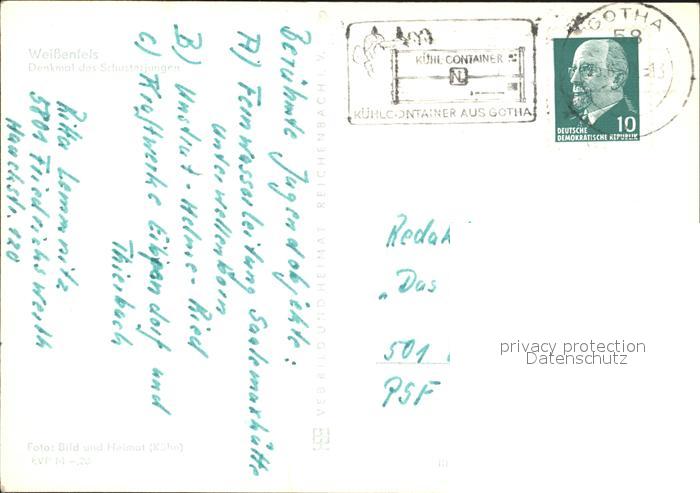 Weißenfels
Denkmal des Schusterjungen
Berühmte Jugendobjekte:
A) Fernwasserleitung Saalemaxhütte
Unterwellenborn
B) Unstrut-Helme-Ried
C) Kraftwerke und
Thierbach
Rita Lemnitz
5801 Friedrichswerth
120
Foto: Bild und Heimat (Kühn)
EVP M -,20
VEB BILD UND HEIMAT REICHENBACH I. V.
KÜHL CONTAINER
N
KÜHLCONTAINER AUS GOTHA
GOTHA
58
DEUTSCHE
DEMOKRATISCHE REPUBLIK
10
Redak
„Das
501
PSF
privacy protection
Datenschutz